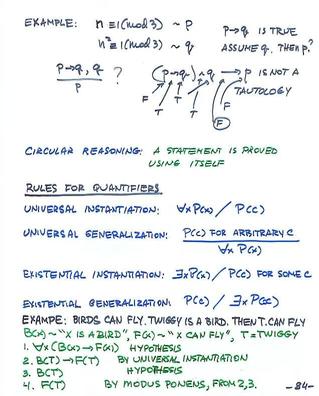 EXAMPLE: n ≡ 1 (mod 3) ~ p
p → q IS TRUE
n² ≡ 1 (mod 3) ~ q
ASSUME q. THEN p?
p → q, q / p ?
(p → q) ∧ q → p IS NOT A
TAUTOLOGY
F T T T F F
CIRCULAR REASONING: A STATEMENT IS PROVED
USING ITSELF
RULES FOR QUANTIFIERS
UNIVERSAL INSTANTIATION: ∀x P(x) / P(c)
UNIVERSAL GENERALIZATION: P(c) FOR ARBITRARY C
∀x P(x)
EXISTENTIAL INSTANTIATION: ∃x P(x) / P(c) FOR SOME C
EXISTENTIAL GENERALIZATION: P(c) / ∃x P(x)
EXAMPE: BIRDS CAN FLY. TWIGGY IS A BIRD. THEN T. CAN FLY
B(x) ~ "X IS A BIRD", F(x) ~ "X CAN FLY", T = TWIGGY
1. ∀x (B(x) → F(x)) HYPOTHESIS
2. B(T) → F(T) BY UNIVERSAL INSTANTIATION
3. B(T) HYPOTHESIS
4. F(T) BY MODUS PONENS, FROM 2,3.
-84-